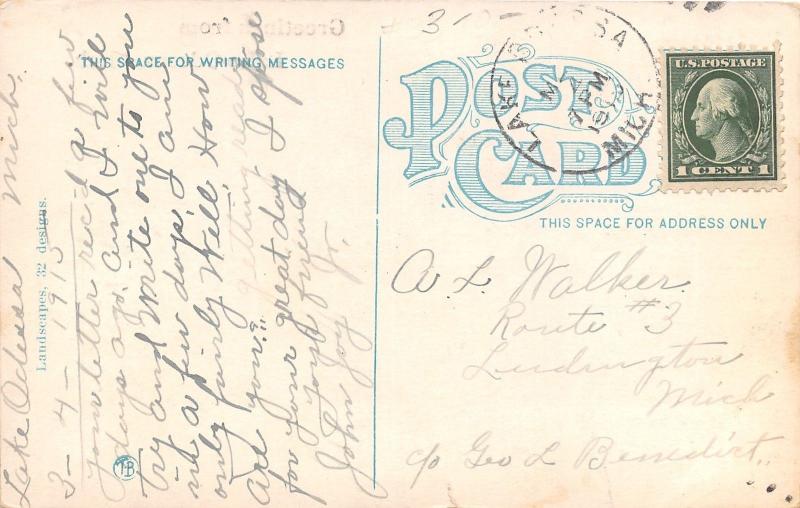 THIS SPACE FOR WRITING MESSAGES
Lake Odessa Mich.
3-4-1915
your letter rec'd a few
days ago and I will
try and write one to you
in a few days, I am
only fairly well. How
are you.. getting ready
for your great day I spose
Loyal friend
John Joy Jr.
Landscapes, 32 designs.
TB
Greetings from
POST CARD
LAKE ODESSA
MICH
U.S. POSTAGE
1 CENT 1
THIS SPACE FOR ADDRESS ONLY
A L Walker
Route #3
Ludington
Mich
c/o Geo L Benedict..